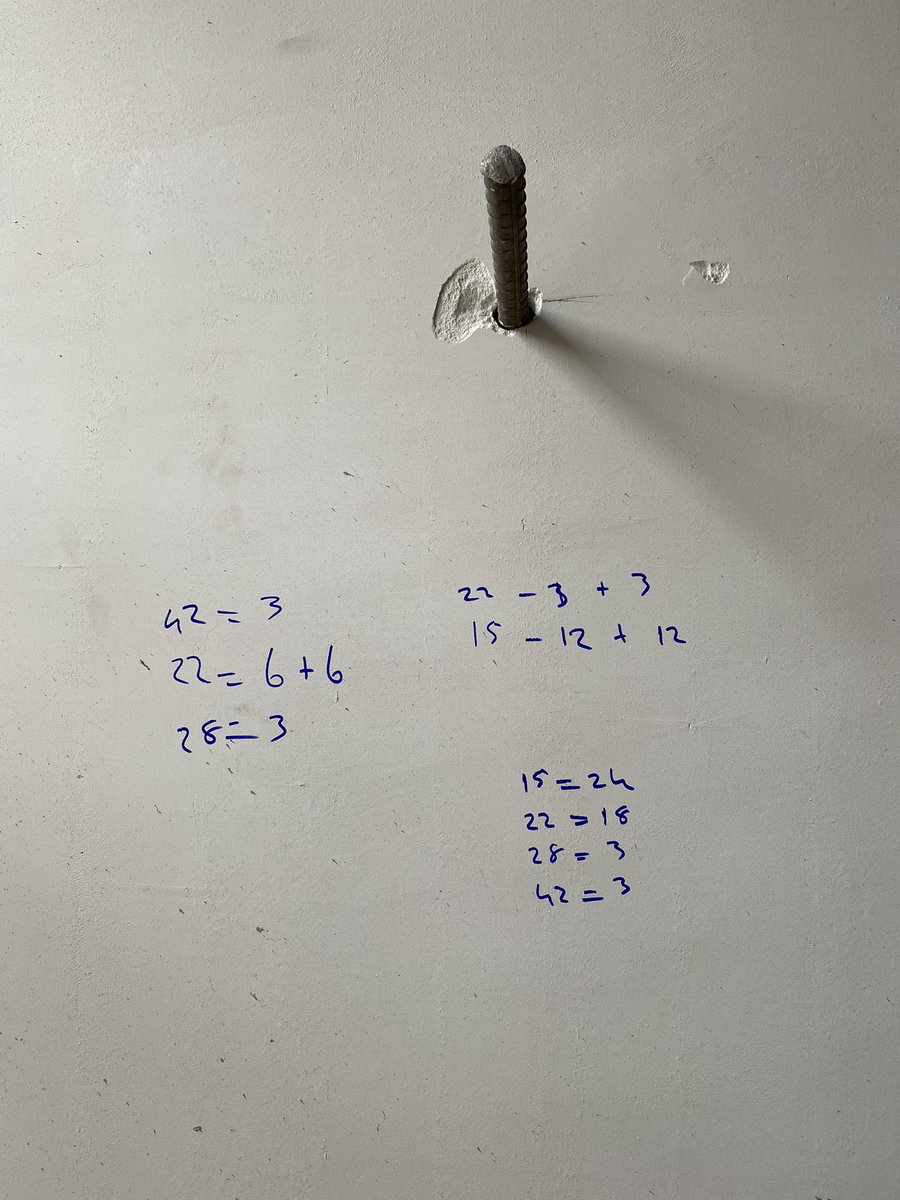 42 = 3
22 = 6 + 6
28 = 3
22 - 3 + 3
15 - 12 + 12
15 = 24
22 = 18
28 = 3
42 = 3